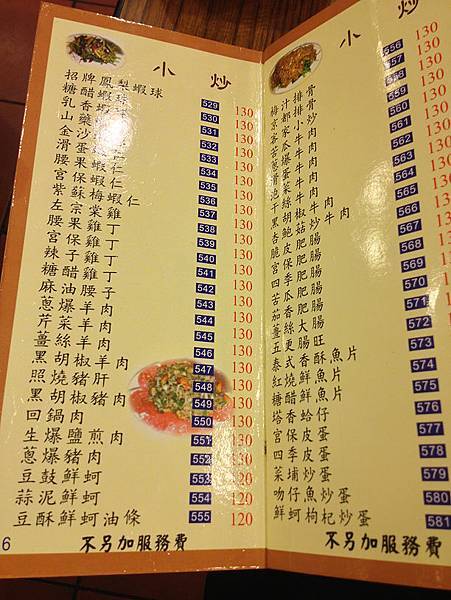 小炒
招牌鳳梨蝦球 529 130
糖醋蝦球 530 130
乳香蝦球 531 130
山藥蝦仁 532 130
金沙蝦仁 533 130
滑蛋蝦仁 534 130
腰果蝦仁 535 130
宮保蝦仁 536 130
紫蘇梅蝦仁 537 130
左宗棠雞 538 130
腰果雞丁 539 130
宮保雞丁 540 130
辣子雞丁 541 130
糖醋雞丁 542 130
麻油腰子 543 130
蔥爆羊肉 544 130
芹菜羊肉 545 130
薑絲羊肉 546 130
黑胡椒羊肉 547 130
照燒豬肝 548 130
黑胡椒豬肉 549 130
回鍋肉 550 130
生爆鹽煎肉 551 130
蔥爆豬肉 552 130
豆鼓鮮蚵 553 120
蒜泥鮮蚵 554 120
豆酥鮮蚵油條 555 120
6 不另加服務費
小炒
梅汁排骨 556 130
京都排骨 557 130
客家小炒 558 130
苦瓜牛肉 559 130
蔥爆牛肉 560 130
滑蛋牛肉 561 130
泡菜牛肉 562 130
干絲牛肉 563 130
黑胡椒牛肉 564 130
杏鮑菇炒牛肉 565 130
脆皮肥腸 566 130
宮保肥腸 567 130
四季肥腸 568 130
苦瓜肥腸 569 130
茄香肥腸 570 130
薑絲大腸 571 130
五更腸旺 572
泰式香酥魚片 573
紅燒鮮魚片 574
糖醋鮮魚片 575
塔香蛤仔 576
宮保皮蛋 577
四季皮蛋 578
菜埔炒蛋 579
吻仔魚炒蛋 580
鮮蚵枸杞炒蛋 581
不另加服務費